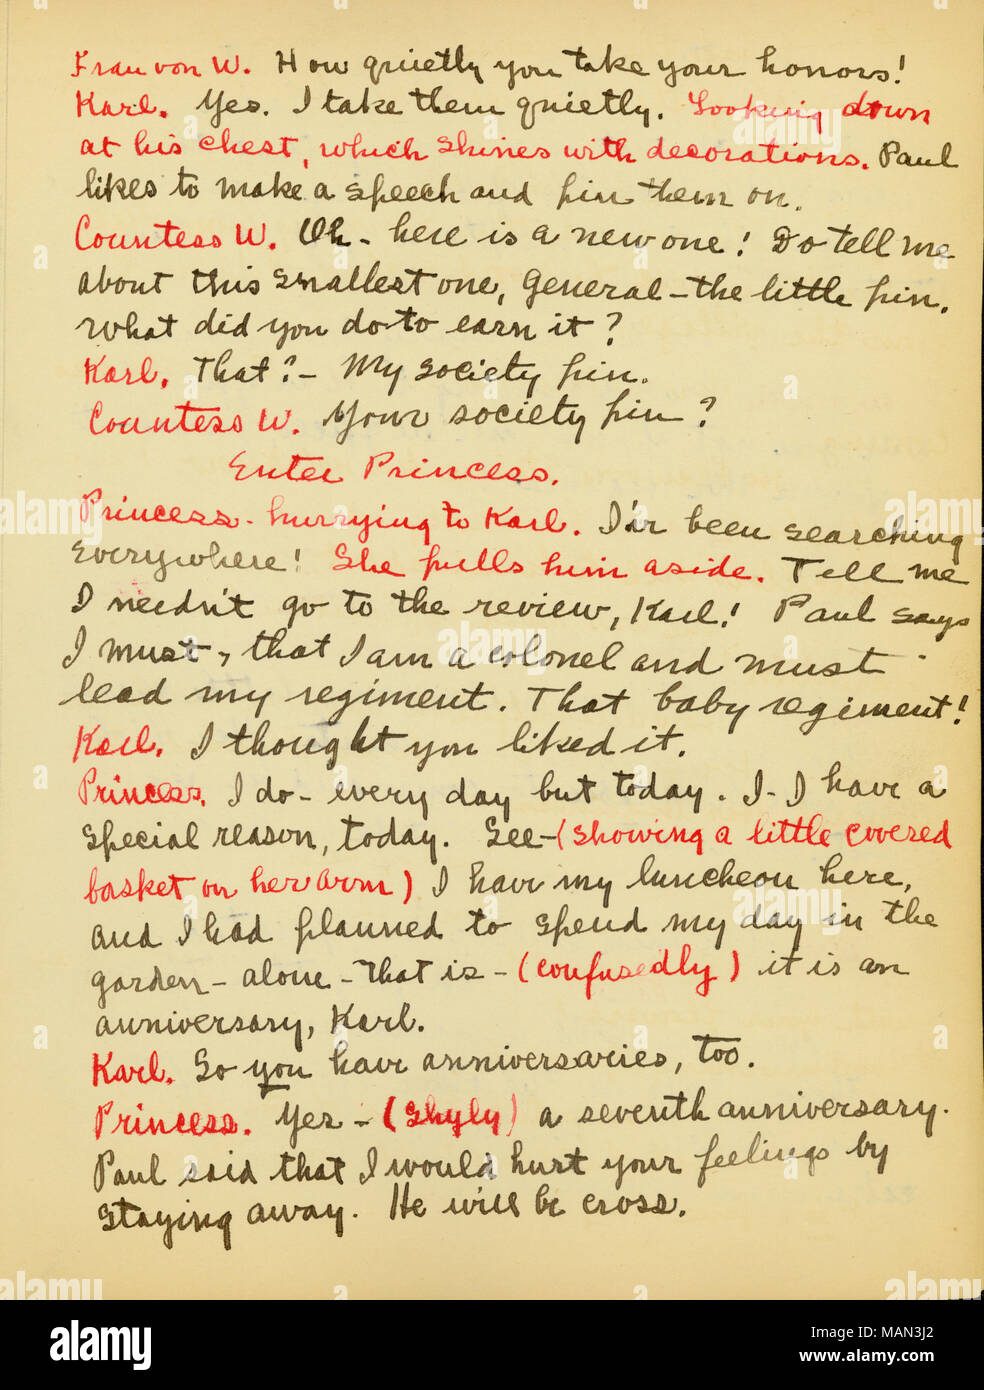 Frau von W. How quietly you take your honors!
Karl. Yes. I take them quietly. Looking down
at his chest, which shines with decorations. Paul
likes to make a speech and pin them on.
Countess W. Oh - here is a new one! Do tell me
about this smallest one, General - the little pin.
What did you do to earn it?
Karl. That? - My society pin.
Countess W. Your society pin?
Enter Princess.
Princess - hurrying to Karl. I've been searching
everywhere! She pulls him aside. Tell me
I needn't go to the review, Karl! Paul says
I must, that I am a colonel and must
lead my regiment. That baby regiment!
Karl. I thought you liked it.
Princess. I do - every day but today. I - I have a
special reason, today. See - (showing a little covered
basket on her arm) I have my luncheon here,
and I had planned to spend my day in the
garden - alone - that is - (confusedly) it is an
anniversary, Karl.
Karl. So you have anniversaries, too.
Princess. Yes - (Shyly) a seventh anniversary.
Paul said that I would hurt your feelings by
staying away. He will be cross.
alamy
Image ID: MAN3J2
www.alamy.com